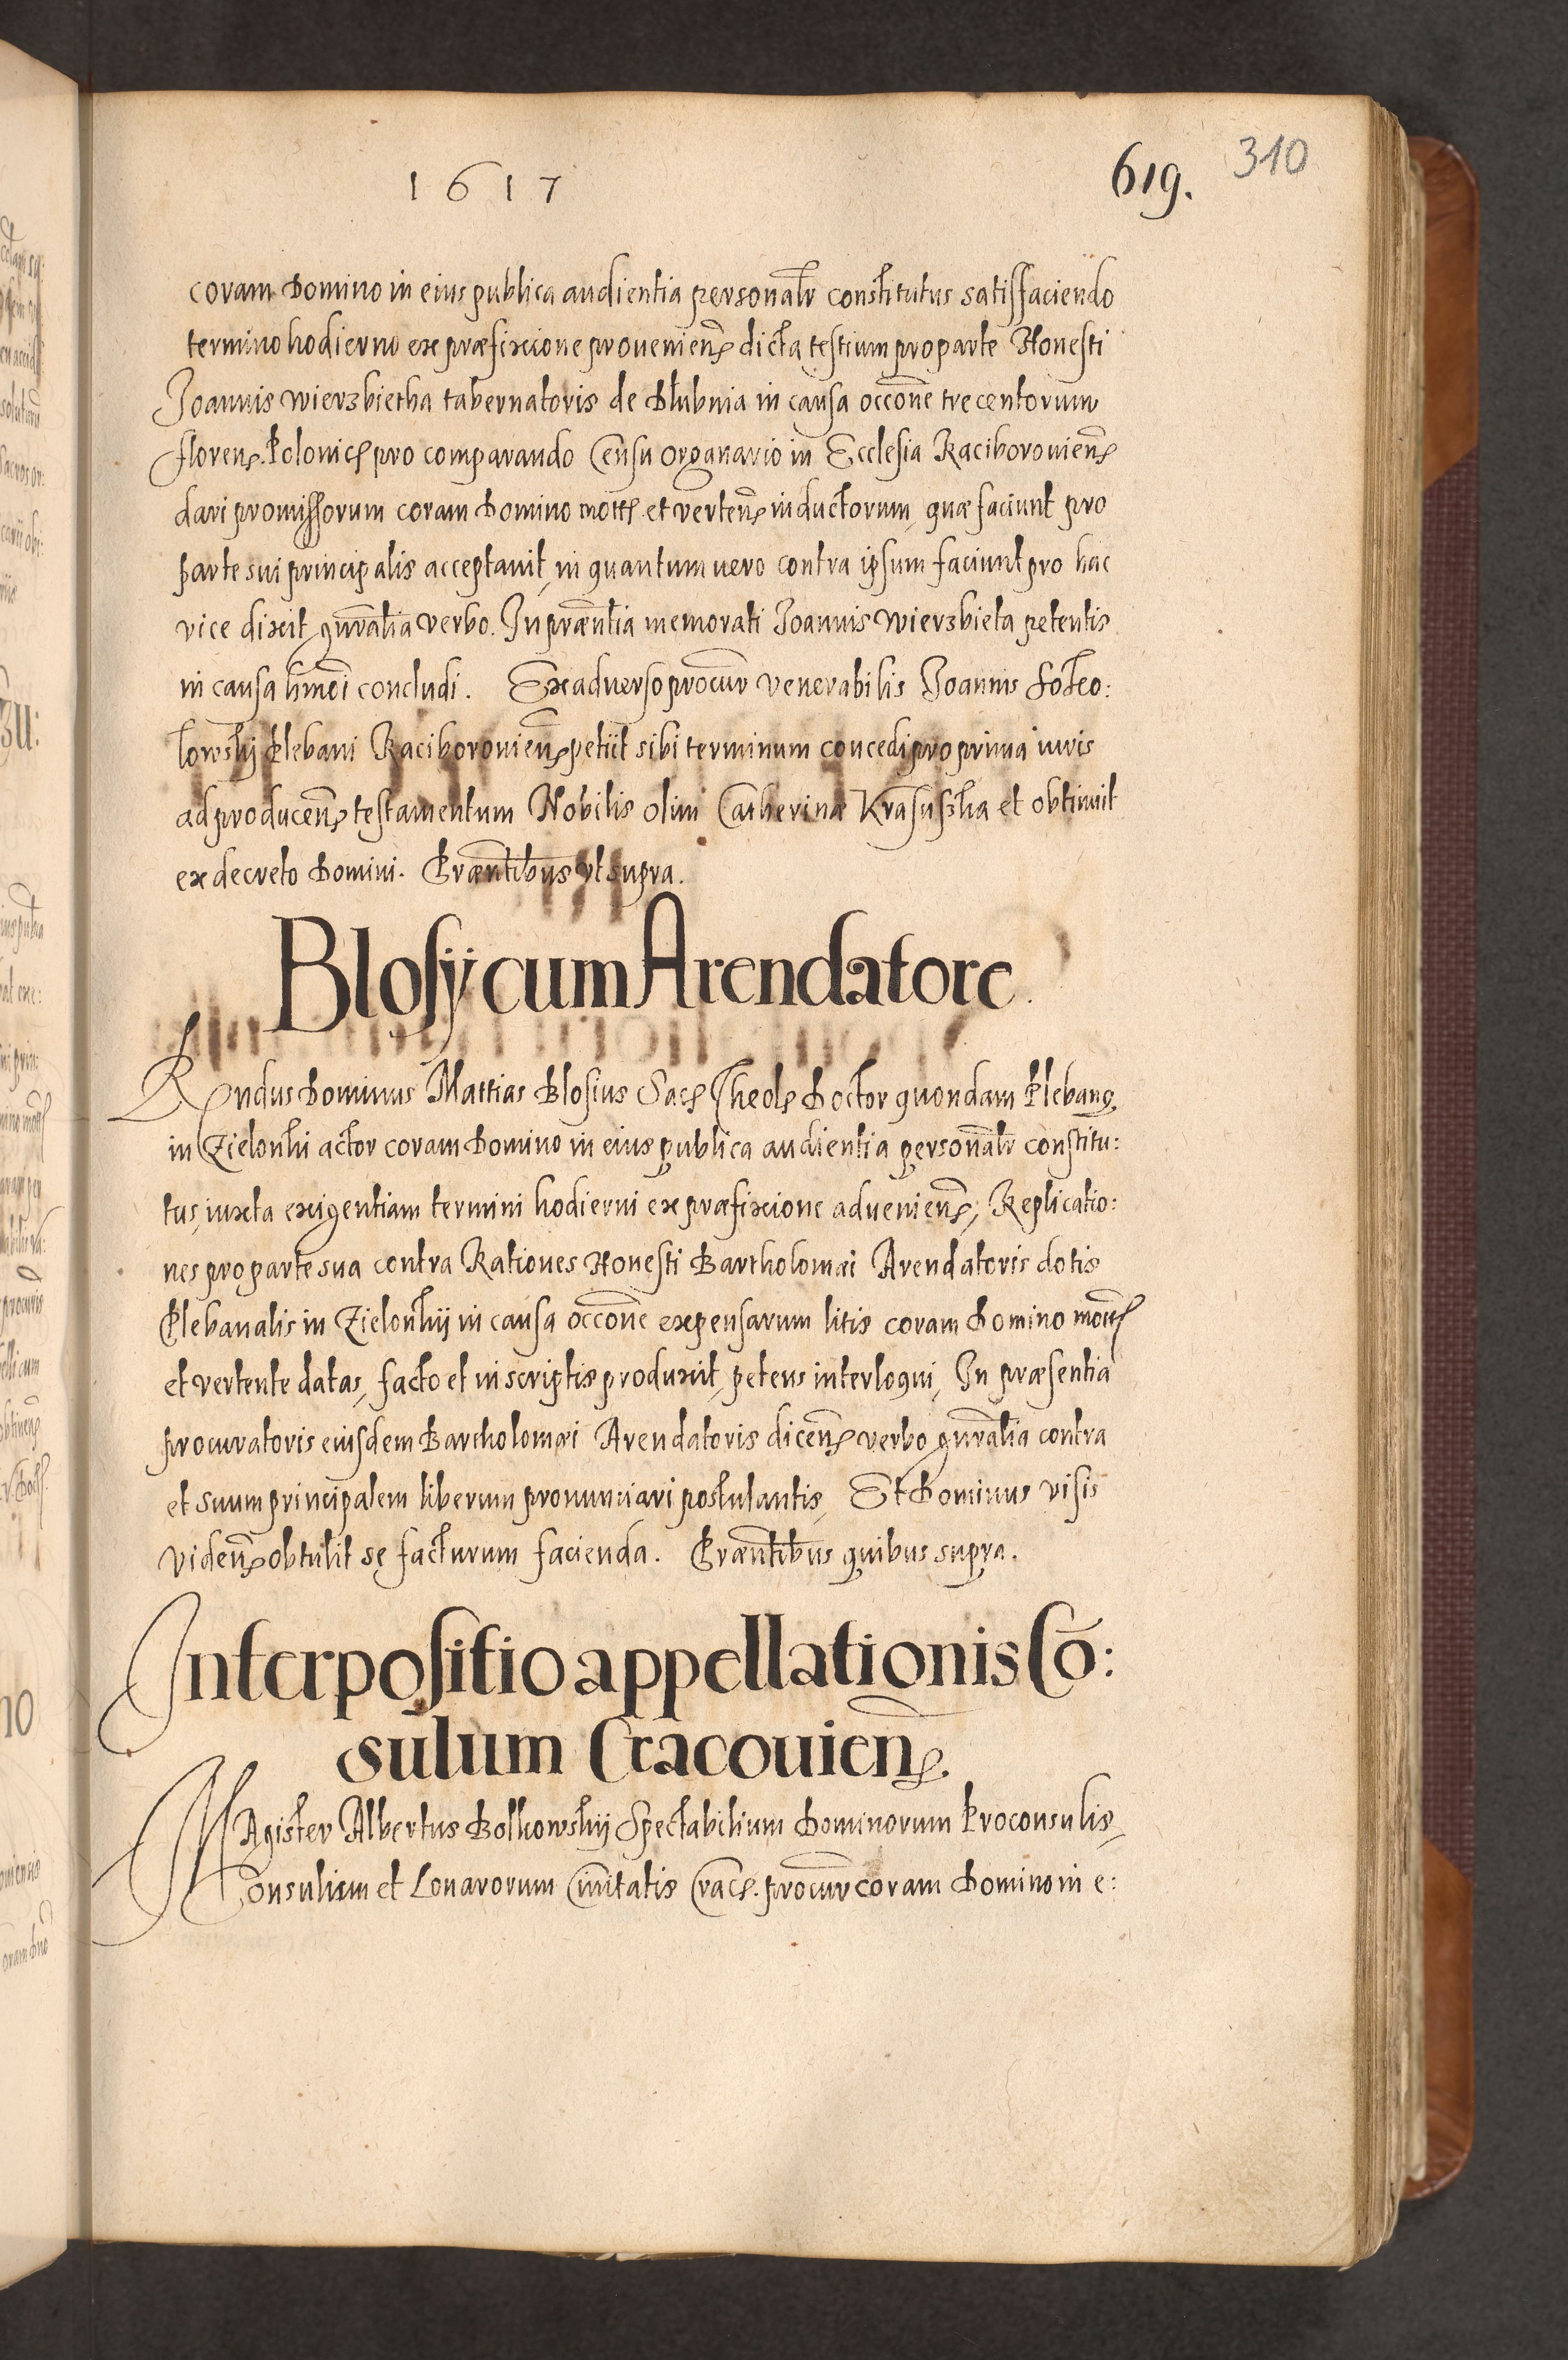 1617
619. 310
coram Domino in eius publica audientia personalr constitutus satisfaciendo
termino hodierno ex præfixione proueniens dicta testium pro parte Honesti
Joannis Wierzbietha tabernatoris de Dlubnia in causa occōne trecentorum
florens. Polonics pro comparando Censu organario in Ecclesia Raciboroniens
dari promissorum coram Domino mots et vertens inductorum, quæ faciunt pro
parte sui principalis acceptauit, in quantum uero contra ipsum faciunt pro hac
vice dixit gnralia verbo. In præntia memorati Joannis Wierzbieta petentis
in causa hmoi concludi. Ex aduerso procur venerabilis Joannis
lowskÿ Plebani Raciboroniens petiit sibi terminum concedi pro prima iuris
ad producens testamentum Nobilis olim Catherinæ et obtinuit
ex decreto Domini. Præntibus vt supra.
Blosÿ cum Arendatore.
Rndus Dominus Mattias Blosius Sacs Theols Doctor quondam Plebanus
in Zielonki actor coram Domino in eius publica audientia personalr constitu:
tus, iuxta exigentiam termini hodierni ex præfixione adueniens, Replicatio:
nes pro parte sua contra Rationes Honesti Bartholomæi Arendatoris dotis
Plebanalis in Zielonkÿ in causa occōne expensarum litis coram Domino mots
et vertente datas, facto et in scriptis produxit, petens interloqui, In præsentia
procuratoris eiusdem Bartholomæi Arendatoris dicens verbo gnralia contra
et suum principalem liberum pronunciari postulantis, Et Dominus visis
videns obtulit se facturum facienda. Præntibus quibus supra.
Interpositio appellationis Cō:
sulum Cracouiens
Magister Albertus Bolkowskÿ Spectabilium Dominorum Proconsulis,
Consulum et Lonarorum Ciuitatis Cracs. procur coram Domino in e: